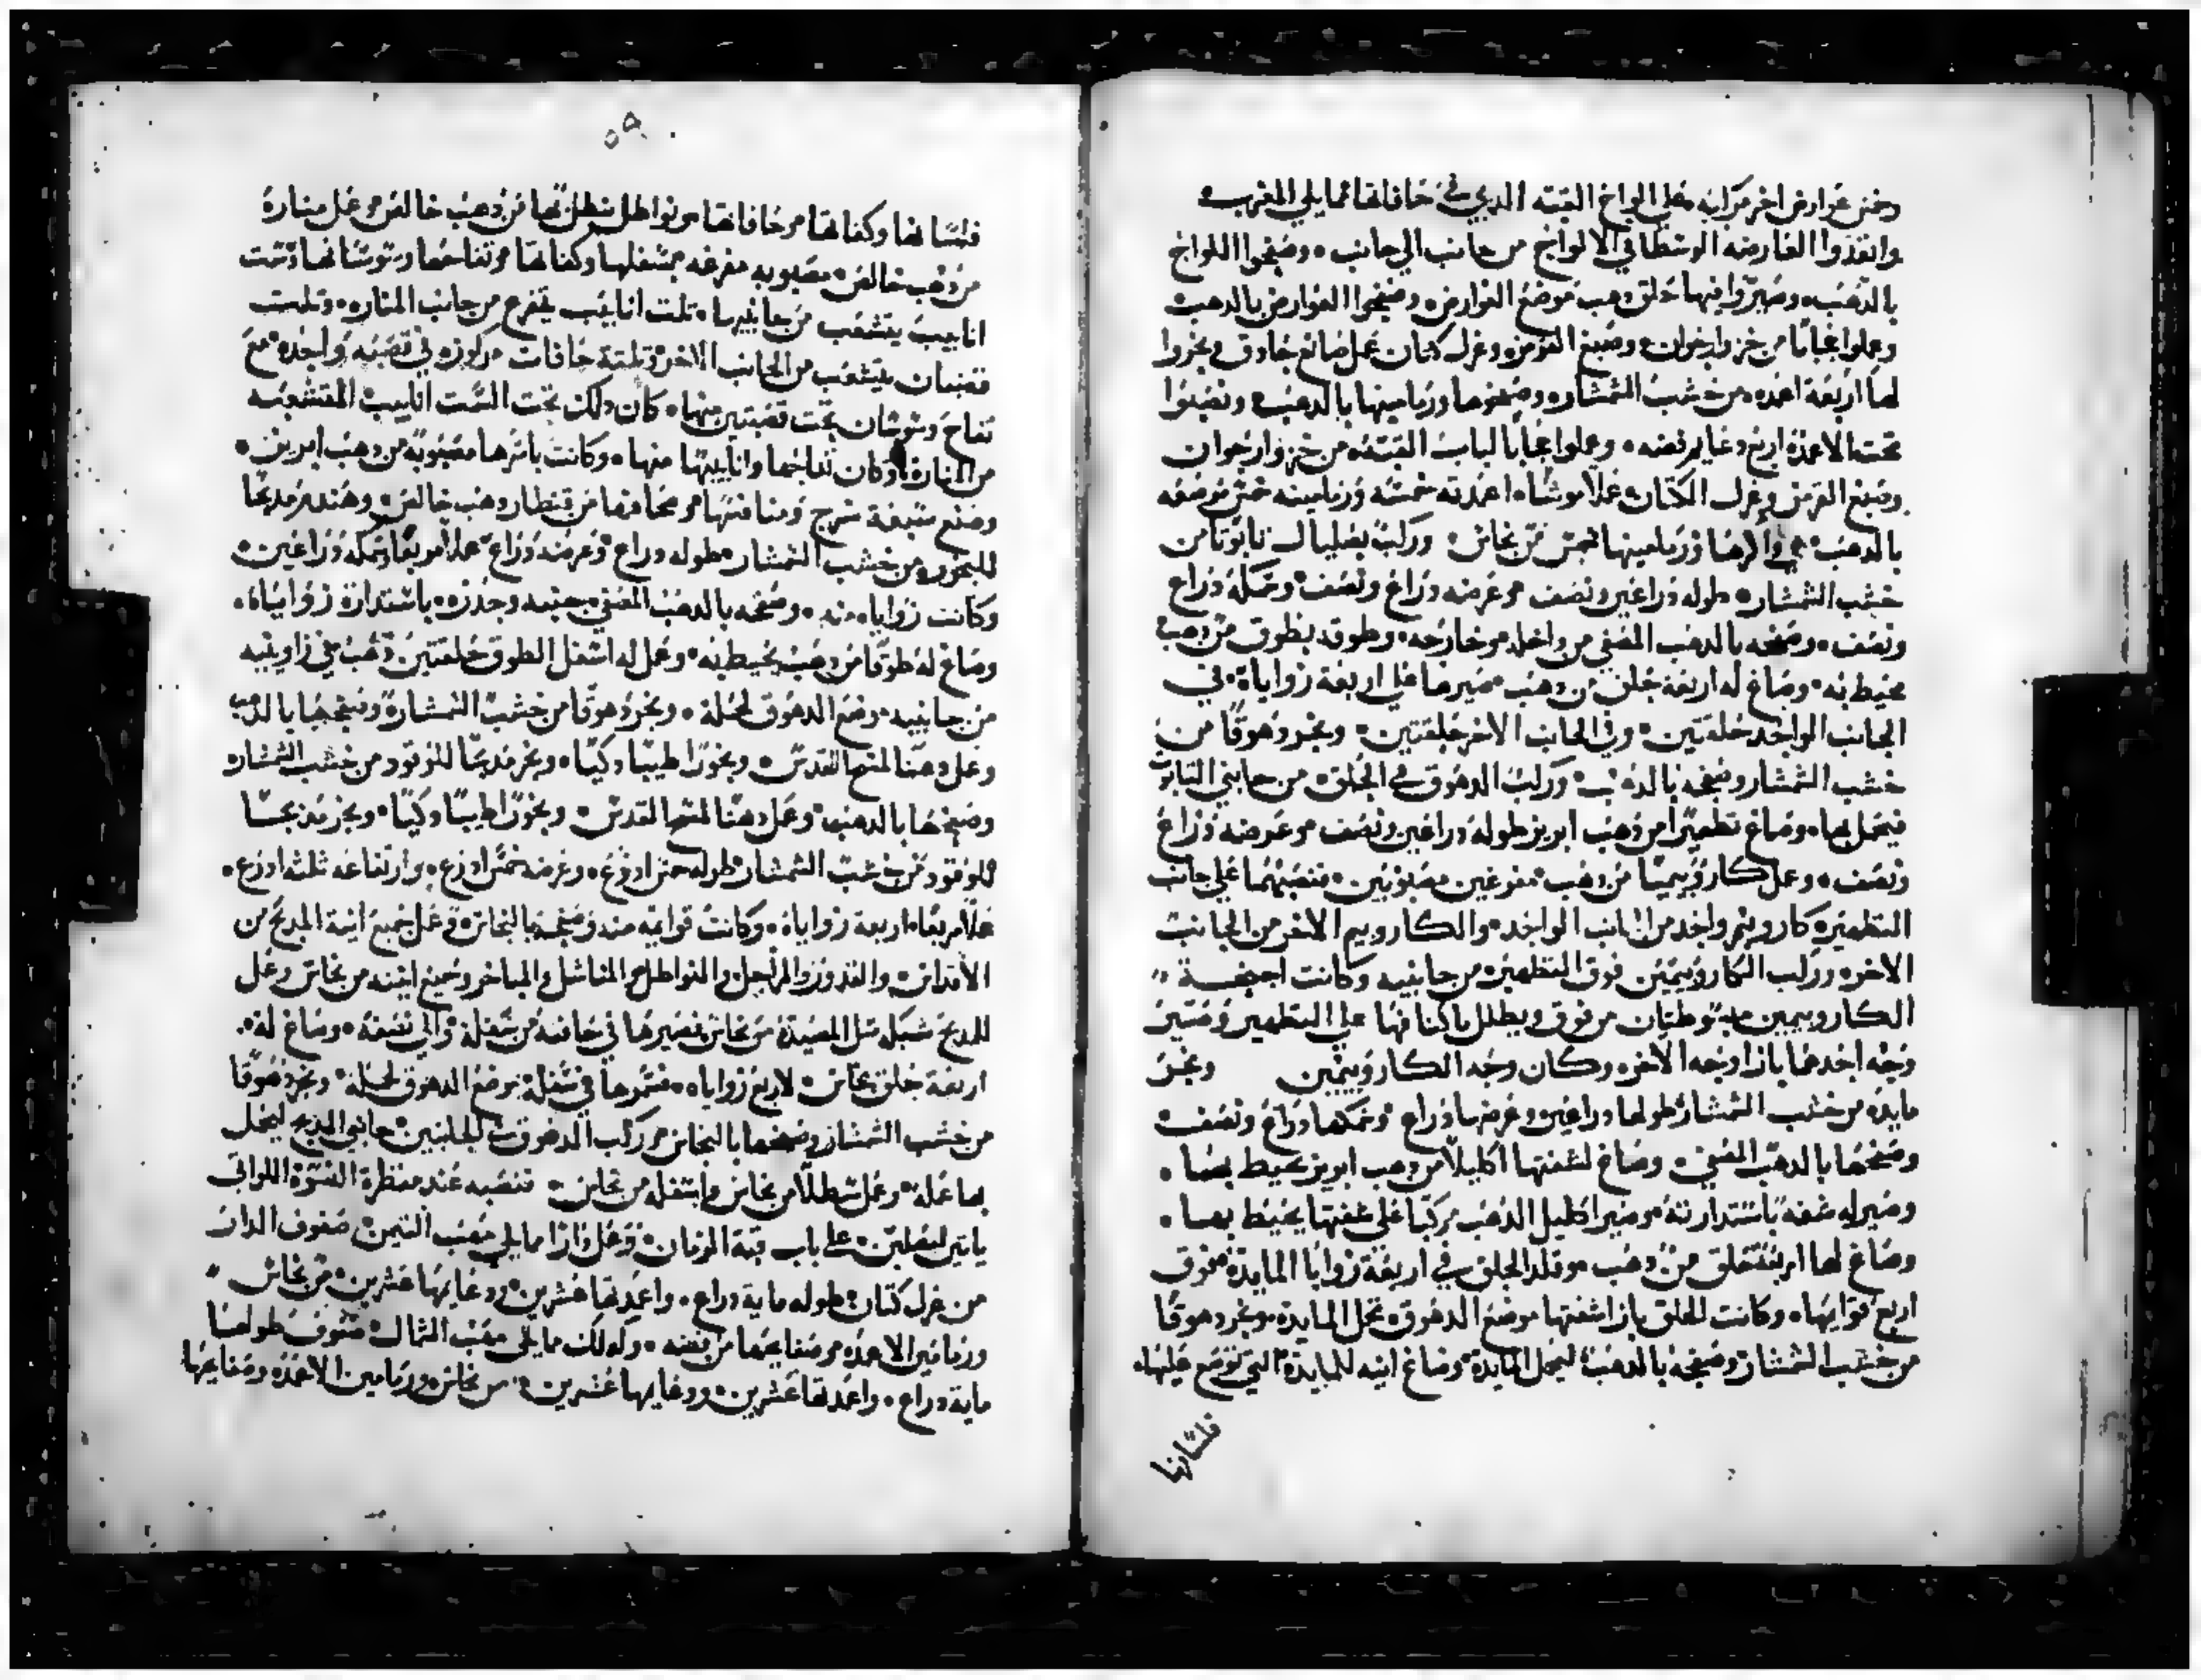 وخمس عوارض اخر مركبه علي الواح القبه الذي في حافاتها مما يلي المغرب
وانفذوا العارضه الوسطا في الالواح من جانب الي جانب • وصفحوا اللواح
بالذهب • وصيروا فيها حلق دهب موضع العوارض • وصفحوا العوارض بالدهب
وعملوا حجابًا من خز وارجوان • وصبغ القرمز • وغزل كتان عمل صانع حادق ونجروا
لها اربعة اعمده من خشب الشمشار • وصفحوها ورمامينها بالدهب • ونصبوا
تحت الاعمدة اربع دعايم فضه • وعملوا حجابًا لباب القبه • من خز وارجوان
وصبغ القرمز وغزل الكتان عملاً موشاه اعمدته خمسه ورمامينه خمس موضعه
بالدهب ورمامينها خمس من نحاس • وركب بصليال تابوتا من
خشب الشمشار • طوله دراعين ونصف • وعرضه دراع ونصف • وسمكه دراع
ونصف • وصفحه بالدهب المصفي من داخله وخارجه • وطوقه بطوق من دهب
محيط به • وصاغ له اربعة حلق من دهب • صيرها علي اربعة زواياه • في
الجانب الواحد حلقتين • وفي الجانب الاخر حلقتين • ونجر دهوقًا من
خشب الشمشار وصفحه بالدهب • وركب الدهوق في الحلق • من جانبي التابوت
فيحمل بها • وصاغ تطهيرًا من دهب ابريز طوله دراعين ونصف • وعرضه دراع
ونصف • وعمل كاروبيميًا من دهب • مفرغين مصبوبين • فنصبهما علي جانب
التطهيره كاروبيم واحد من الجانب الواحد • والكاروبيم الاخر من الجانب
الاخره وركب الكاروبيمين فوق التطهيره من جانبيه وكانت اجنحة
الكاروبيمين مبسوطتان من فوق ويظلل باكنافها علي التطهير ومسير
وجه احدهما بازا وجه الاخره وكان وجه الكاروبيمين ونجر
مايده من خشب الشمشار طولها دراعين وعرضها دراع وسمكها دراع ونصف
وصفحها بالدهب المصفي • وصاغ لشفتها اكليلاً من دهب ابريز محيط بها •
وصير له شفه باستدارته وصير اكليل الدهب مركبا علي شفتها يحيط بها •
وصاغ لها اربعة حلق من دهب • وقلد الحلق في اربعة زوايا المايدة فوق
اربع قوايمها • وكانت الحلق بازا شفتها موضع الدهوق تحمل المايدة ونجر دهوقًا
من خشب الشمشار وصفحه بالدهب ليحمل المايدة وصاغ انيه للمايدة التي توضع عليها
فلساتها
٥٩
فلساتها وكفاتها وحافاتها ونواطل ينطل بها من دهب خالص وعمل منارة
من دهب خالص مصبوبه مفرغه بسفلها وكفاتها وتفاحها وسوسانها وست
انابيب يتشعب من جانبيها • تلت انابيب يتفرع من جانب المناره • وتلت
قصبان يتشعب من الجانب الاخر وتلتة حافات مركوزه في قصبه واحده مع
تفاح وسوسان تحت قصبتين منها • كان دلك تحت الست انابيب المتشعبه
من المنارة وكان تفاحها وانابيبها منها • وكانت باسرها مصبوبة من دهب ابريز •
وصنع سبعة سرج ومنافتها ومحامها من قنطار دهب خالص • وهندم مدبحًا
للبخور من خشب الشمشار طوله دراع وعرضه دراع عملاً مربعًا وسمكه دراعين
وكانت زواياه منه • وصفحه بالدهب المصفي جنبه وجدره • باستدارة زواياه •
وصاغ له طوقًا من دهب يحيط به • وعمل له اسفل الطوق حلقتين دهب في زاويتيه
من جانبيه وصير الدهوق لحمله • ونجر دهوقًا من خشب الشمشارة وصفحها بالدهب
وعمل دهنا لمسح القدس • وبخورًا طيبًا وكيًا • ونجر مدبحًا للوقود من خشب الشمشار
وصفحها بالدهب • وعمل دهنا لمسح القدس • وبخورًا طيبًا وكيًا • ونجر مدبحًا
للوقود من خشب الشمشار طوله خمس ادرع • وعرضه خمس ادرع • وارتفاعه ثلثه ادرع •
عملاً مربعًا • اربعة زواياه • وكانت قوايمه منه وصفحه بالنحاس وعمل جميع انية المدبح من
الاقداس والقدور والمراجل والنواطل والمناشل والمباخر وجميع انيته من نحاس وعمل
للمدبح شبكه مثل المصيدة من نحاس فصيرها في حافته من سفلة والي نصفه • وصاغ له •
اربعة حلق نحاس • لاربع زواياه • فسمرها في سفلة موضع الدهوق لحمله • ونجر دهوقًا
من خشب الشمشار وصفحها بالنحاس وركب الدهوق في الحلقتين جانبي المدبح ليحمل
بها عمله • وعمل سطلاً من نحاس واسفله من نحاس • فنصبه عند منظرة النسوة اللواتي
ياتين ليصلين علي باب قبة الزمان • وعمل دارا ما يلي مهب التيمن صفوف الدار
من غزل كتان طوله ماية دراع • واعمدتها عشرين ودعايمها عشرين من نحاس
ورمامين الاعمده وصفايحها من فضه • وكدلك ما يلي مهب الشمال صفوف طولها
ماية دراع • واعمدتها عشرين ودعايمها عشرين من نحاس ورمامين الاعمده وصفايحها